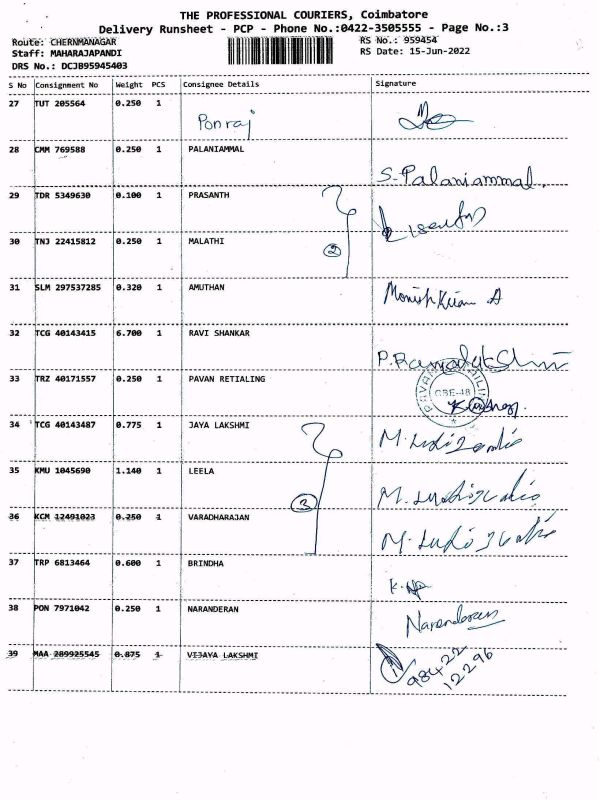 THE PROFESSIONAL COURIERS, Coimbatore
Delivery Runsheet - PCP - Phone No.:0422-3505555 - Page No.:3
Route: CHERNMANAGAR
RS No.: 959454
Staff: MAHARAJAPANDI
RS Date: 15-Jun-2022
DRS No.: DCJB95945403
S No Consignment No Weight PCS Consignee Details Signature
27 TUT 205564 0.250 1 Ponraj
28 CMM 769588 0.250 1 PALANIAMMAL
S. Palaniammal.
29 TDR 5349630 0.100 1 PRASANTH
2
30 TNJ 22415812 0.250 1 MALATHI
31 SLM 297537285 0.320 1 AMUTHAN
32 TCG 40143415 6.700 1 RAVI SHANKAR
33 TRZ 40171557 0.250 1 PAVAN RETIALING
CBE-48
34 TCG 40143487 0.775 1 JAYA LAKSHMI
35 KMU 1045690 1.140 1 LEELA
3
36 KCM 12491023 0.250 1 VARADHARAJAN
37 TRP 6813464 0.600 1 BRINDHA
38 PON 7971042 0.250 1 NARANDERAN
Narenderan
39 MAA 289925545 0.875 1 VIJAYA LAKSHMI
98422
12296